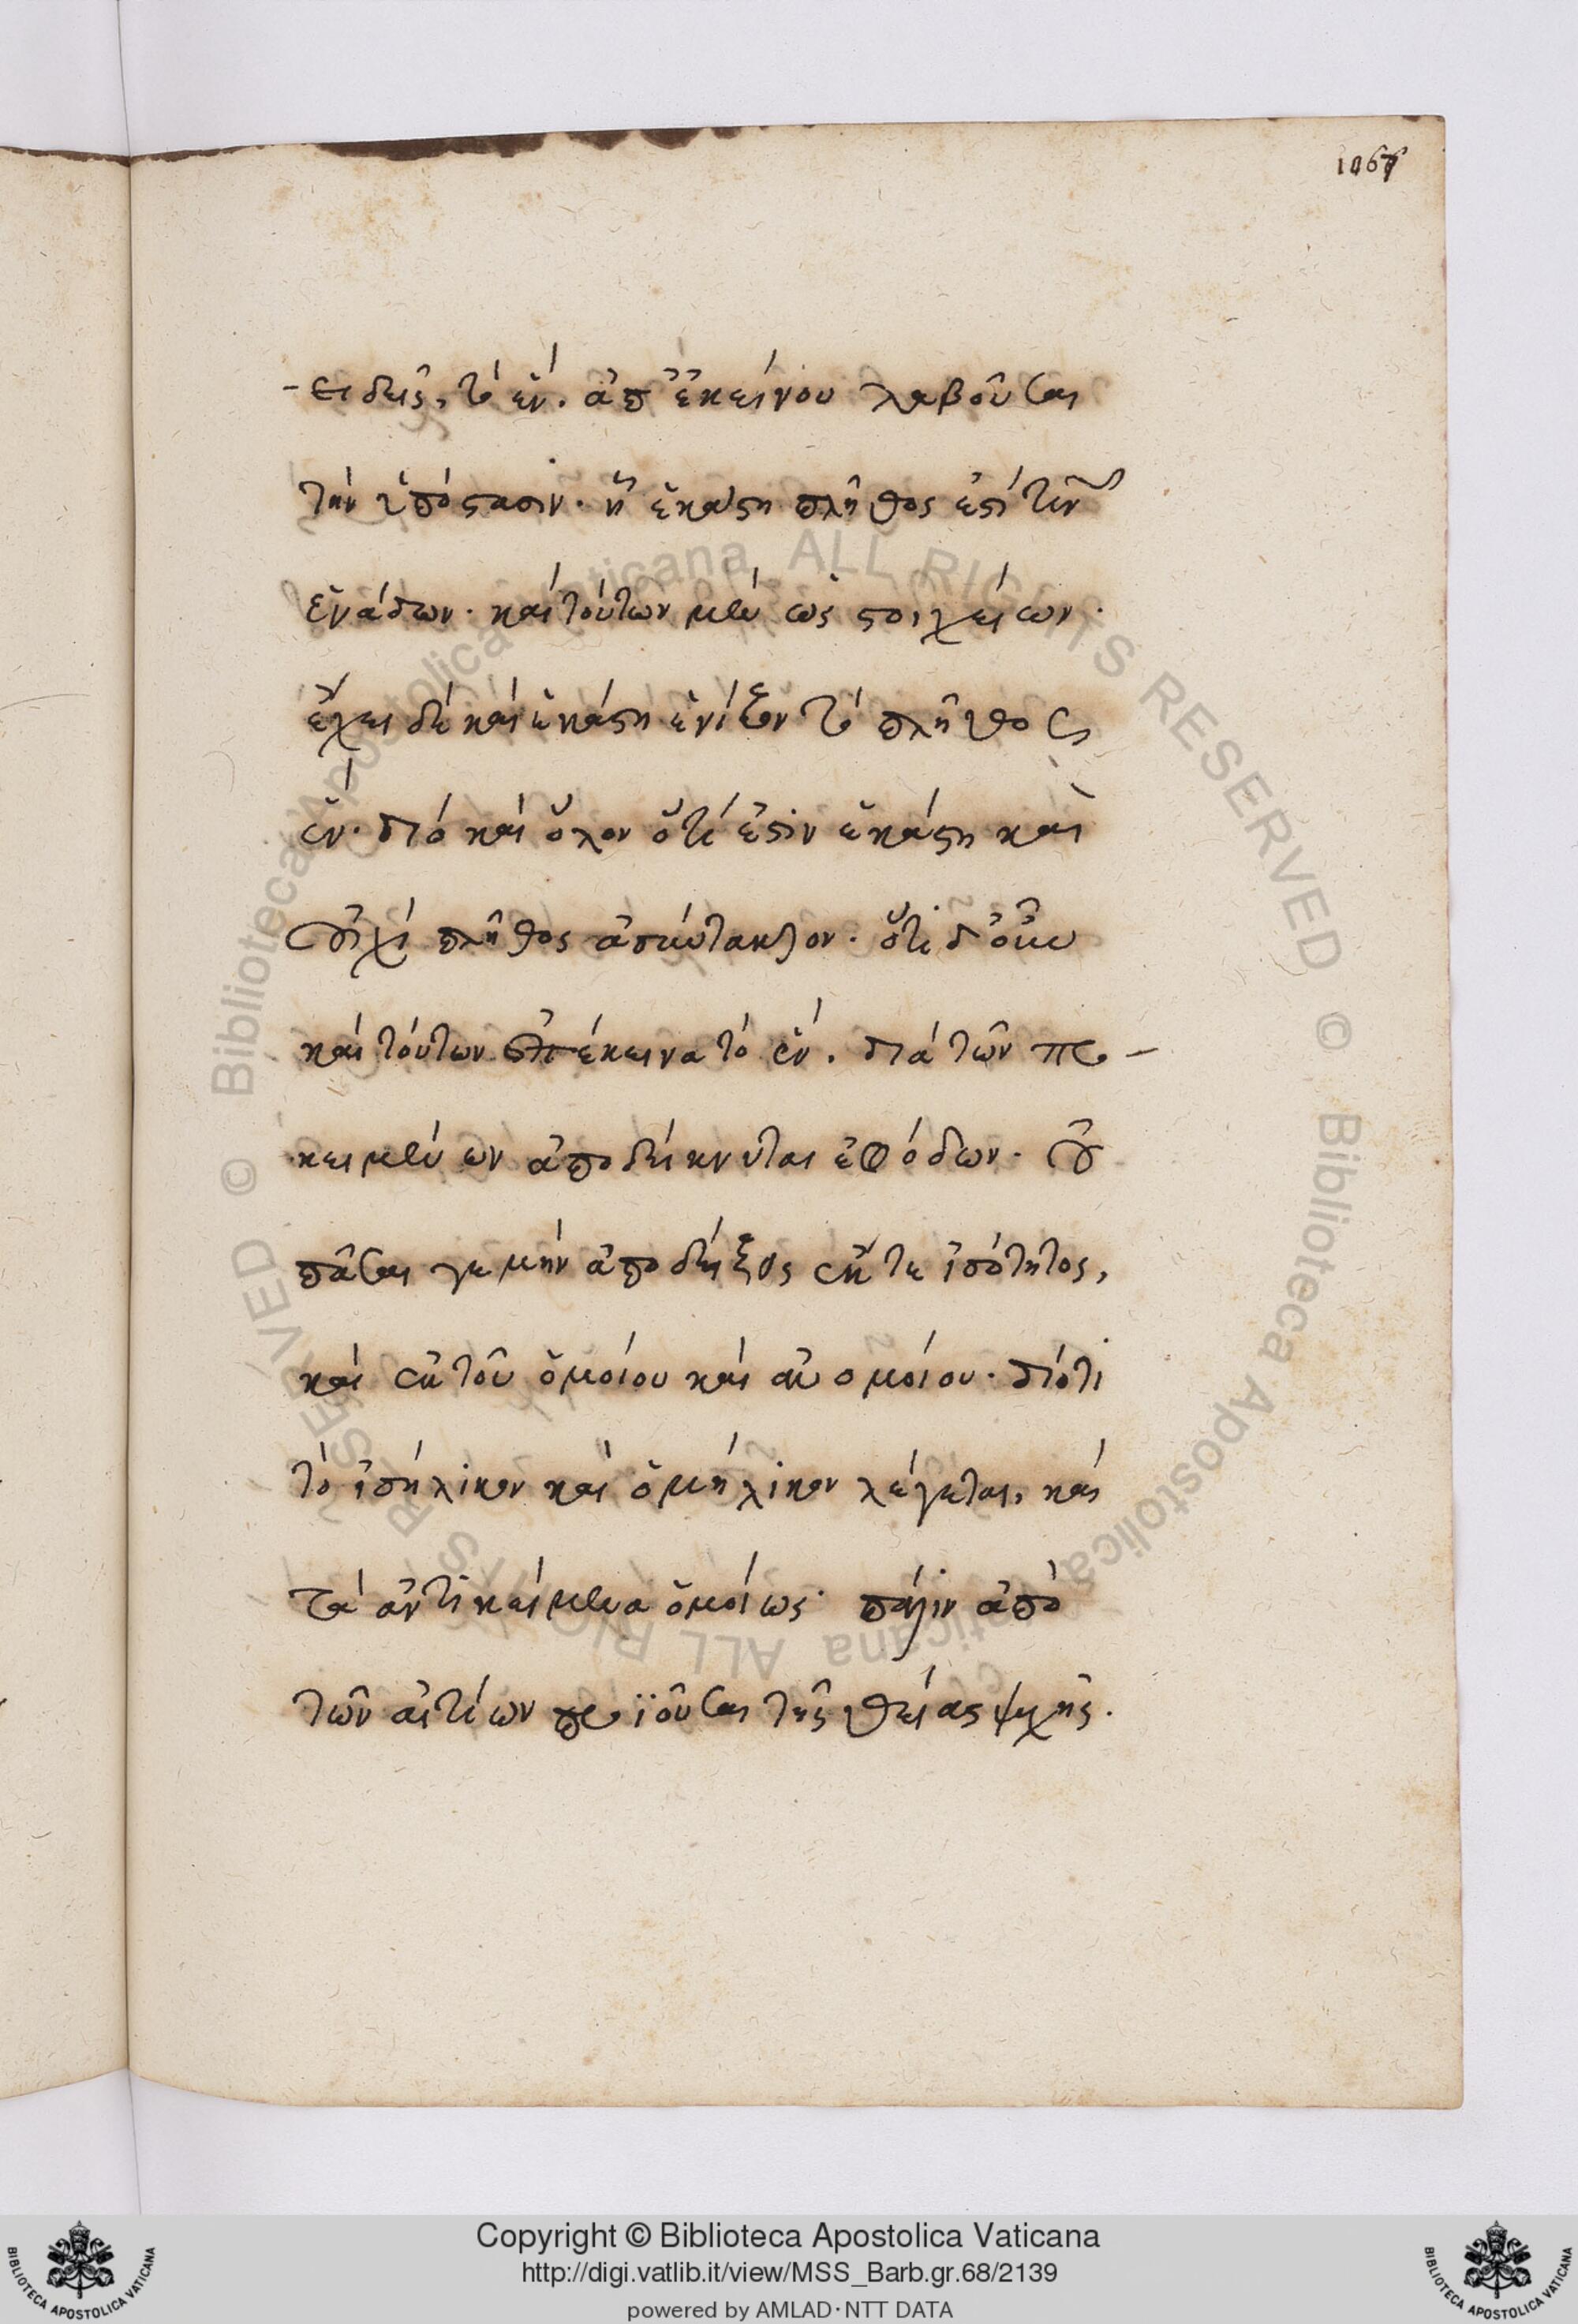 1067
-ειδεῖς, τὸ ἕν. ἀπ' ἐκείνου λαβοῦσαι
τὴν ὑπόστασιν. ἢ ἑκάστη πλῆθος ἐστί τῶν
ἑνάδων. καὶ τούτων μὲν ὡς στοιχείων.
ἔχει δὲ καὶ ἑκάστη ἑνίζον τὸ πλῆθος
ἕν. διὸ καὶ ὅλον ὅτί ἐστιν ἑκάστη καὶ
οὐχὶ πλῆθος ἀσύντακτον. ὅτι δ' οὖν
καὶ τούτων ἐπέκεινα τὸ ἕν. διὰ τῶν προ-
κειμένων ἀποδείκνυται ἐφόδων. οὐ
πᾶσαι γε μὴν ἀποδείξεις ἔκ τε ἰσότητος,
καὶ ἐκ τοῦ ὁμοίου καὶ ἀνομοίου. διότι
τὸ ἰσήλικον καὶ ὁμήλικον λέγεται, καὶ
τὰ ἀντικείμενα ὁμοίως. πάλιν ἀπὸ
τῶν αἰτίων προϊοῦσαι τῆς θείας ψυχῆς.
© Biblioteca Apostolica Vaticana ALL RIGHTS RESERVED © Biblioteca Apostolica Vaticana ALL RIGHTS RESERVED
Copyright © Biblioteca Apostolica Vaticana
http://digi.vatlib.it/view/MSS_Barb.gr.68/2139
powered by AMLAD·NTT DATA
BIBLIOTECA APOSTOLICA VATICANA
BIBLIOTECA APOSTOLICA VATICANA